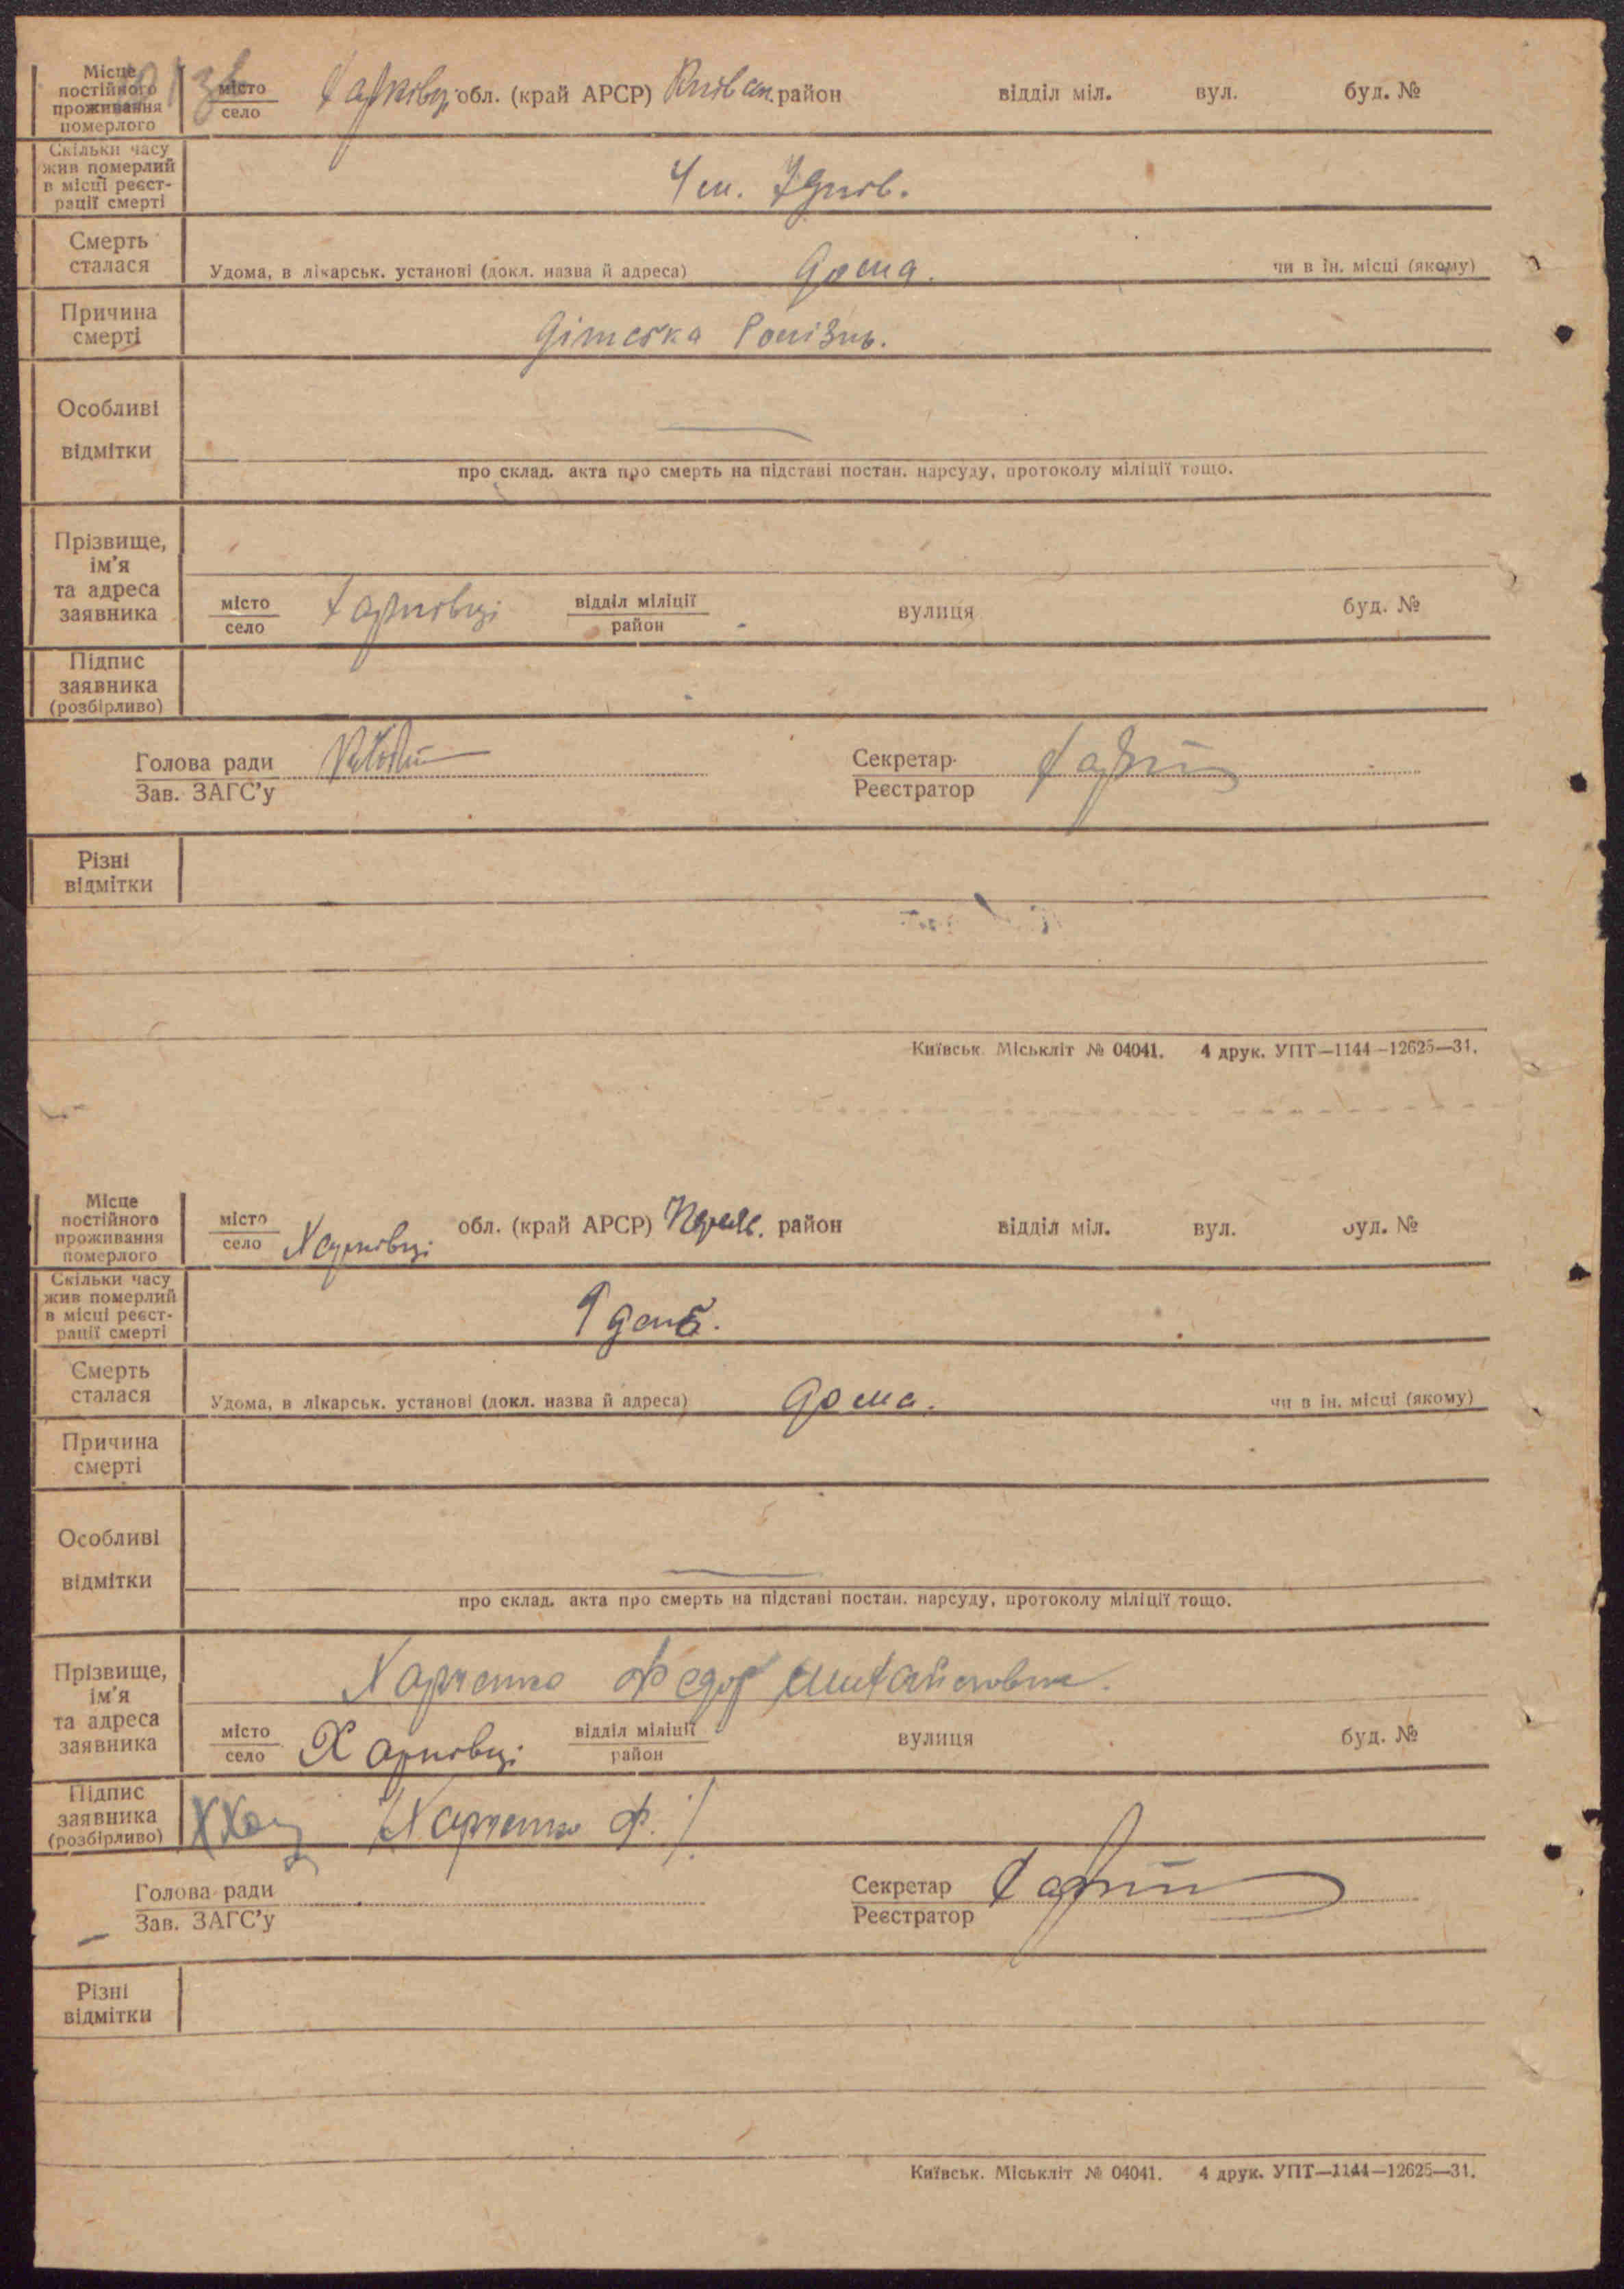 Місце постійного проживання померлого
місто село Харківці обл. (край АРСР) район відділ міл. вул. буд. №
Скільки часу жив померлий в місці реєстрації смерті
4 м. 7 днів.
Смерть сталася
Удома, в лікарськ. установі (докл. назва й адреса) дома. чи в ін. місці (якому)
Причина смерті
Дітська
Особливі відмітки
про склад. акта про смерть на підставі постан. нарсуду, протоколу міліції тощо.
Прізвище, ім'я та адреса заявника
місто село Харківці відділ міліції район вулиця буд. №
Підпис заявника (розбірливо)
Голова ради Зав. ЗАГС'у
Секретар Реєстратор
Різні відмітки
Київськ. Міськліт № 04041. 4 друк. УПТ—1144—12625—31.
Місце постійного проживання померлого
місто село Харківці обл. (край АРСР) район відділ міл. вул. буд. №
Скільки часу жив померлий в місці реєстрації смерті
1 день.
Смерть сталася
Удома, в лікарськ. установі (докл. назва й адреса) дома. чи в ін. місці (якому)
Причина смерті
Особливі відмітки
про склад. акта про смерть на підставі постан. нарсуду, протоколу міліції тощо.
Прізвище, ім'я та адреса заявника
Харченко Федор Михайлович.
місто село Харківці відділ міліції район вулиця буд. №
Підпис заявника (розбірливо)
/Харченко Ф./
Голова ради Зав. ЗАГС'у
Секретар Реєстратор
Різні відмітки
Київськ. Міськліт № 04041. 4 друк. УПТ—1144—12625—31.